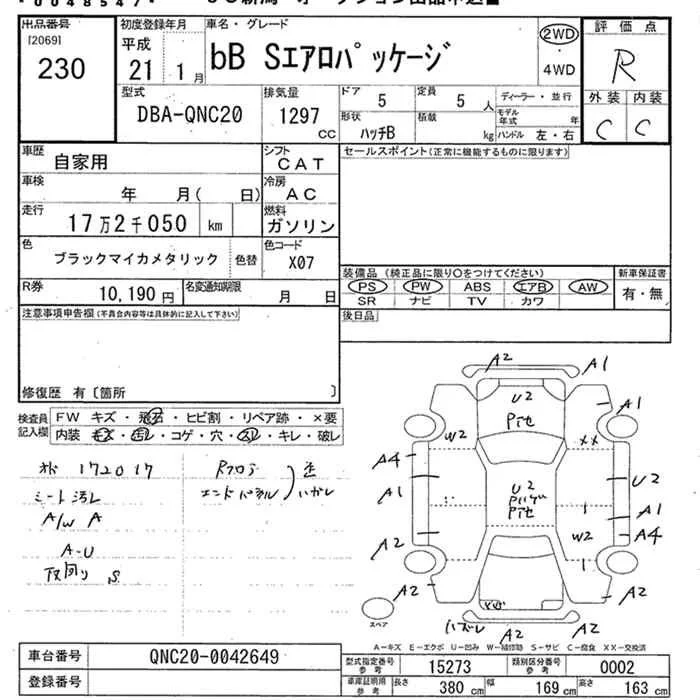 出品番号
[2069]
230
初度登録年月
平成
21 1月
車名・グレード
bB Sエアロパッケージ
2WD
・
4WD
評価点
R
型式
DBA-QNC20
排気量
1297
CC
ドア
5
定員
5人
ディーラー・並行
モデル年式 年
形状
ハッチB
積載
kg
ハンドル 左・右
外装 内装
C C
車歴
自家用
シフト
CAT
セールスポイント(正常に機能するものに限ります)
車検
年 月( 日)
冷房
AC
走行
17万2千050 km
燃料
ガソリン
色
ブラックマイカメタリック
色替
色コード
X07
装備品(純正品に限り○をつけてください)
新車保証書
PS PW ABS エアB AW
SR ナビ TV カワ
有・無
R券
10,190円
名変通知期限
月 日
後日品
注意事項申告欄(不具合内容等は具体的に記入して下さい)
修復歴 有〔箇所 〕
検査員
記入欄
FW キズ・飛石・ヒビ割・リペア跡・×要
内装 キズ・汚レ・コゲ・穴・スレ・キレ・破レ
172017
シート汚レ
A/W A
A-U
S
Rフロア
エンドパネル
ハガレ
A2
A1
U2
A1
W2
XX
A4
A1
U2
U2
A1
W2
A4
A2
A2
A2
A2
ハズレ
A2
スペア
A-キズ E-エクボ U-凹み W-補修跡 S-サビ C-腐食 XX-交換済
車台番号
QNC20-0042649
登録番号
型式指定番号
参考
15273
類別区分番号
参考
0002
車庫証明用
参考
長さ
380 cm
幅
169 cm
高さ
163 cm